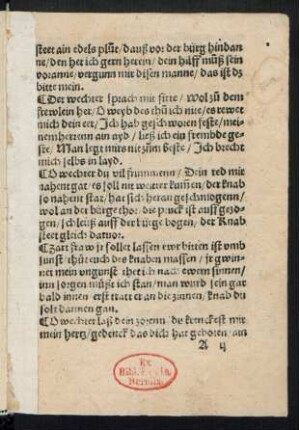 steet ain edels plůt / dauß vor der bürg hindan
ne / den het ich gern herein / dein hilff můß sein
voranne / vergunn mit disen manne / das ist dz
bitte mein.
¶Der wechter sprach mit sitte / Wol zů dem
frewlein her / O weyb des thů ich nite / es rewet
mich dein eer / Ich hab geschworen feste / mei-
nem herrenn ain ayd / ließ ich ein frembde ge-
ste / Man legt mirs nit zům beste / Ich brecht
mich selbs in layd.
¶O wechter du vil frummenn / Dein red mir
nahent gat / es soll nit weytter kummen / der knab
so nahent stat / hat sich heran geschmogenn /
wol an der bürge thor / die pruck ist auff gezo-
gen / schleüß auff der bürge bogen / der Knab
steet gleich daruor.
¶Zart fraw jr sollet lassen ewr bitten ist vmb
sunst / thůt euch des knaben massen / jr gwin-
net mein vngunst / thet ich nach ewrem sinnen /
inn sorgen můßt ich stan / man wurd sein gar
bald innen / erst tratt er an die zinnen / knab du
solt dannen gan.
¶O wechter laß dein zorenn / du krenckest mir
mein hertz / gedenck das dich hat geboren / ain
A ij
Ex
Berolin.